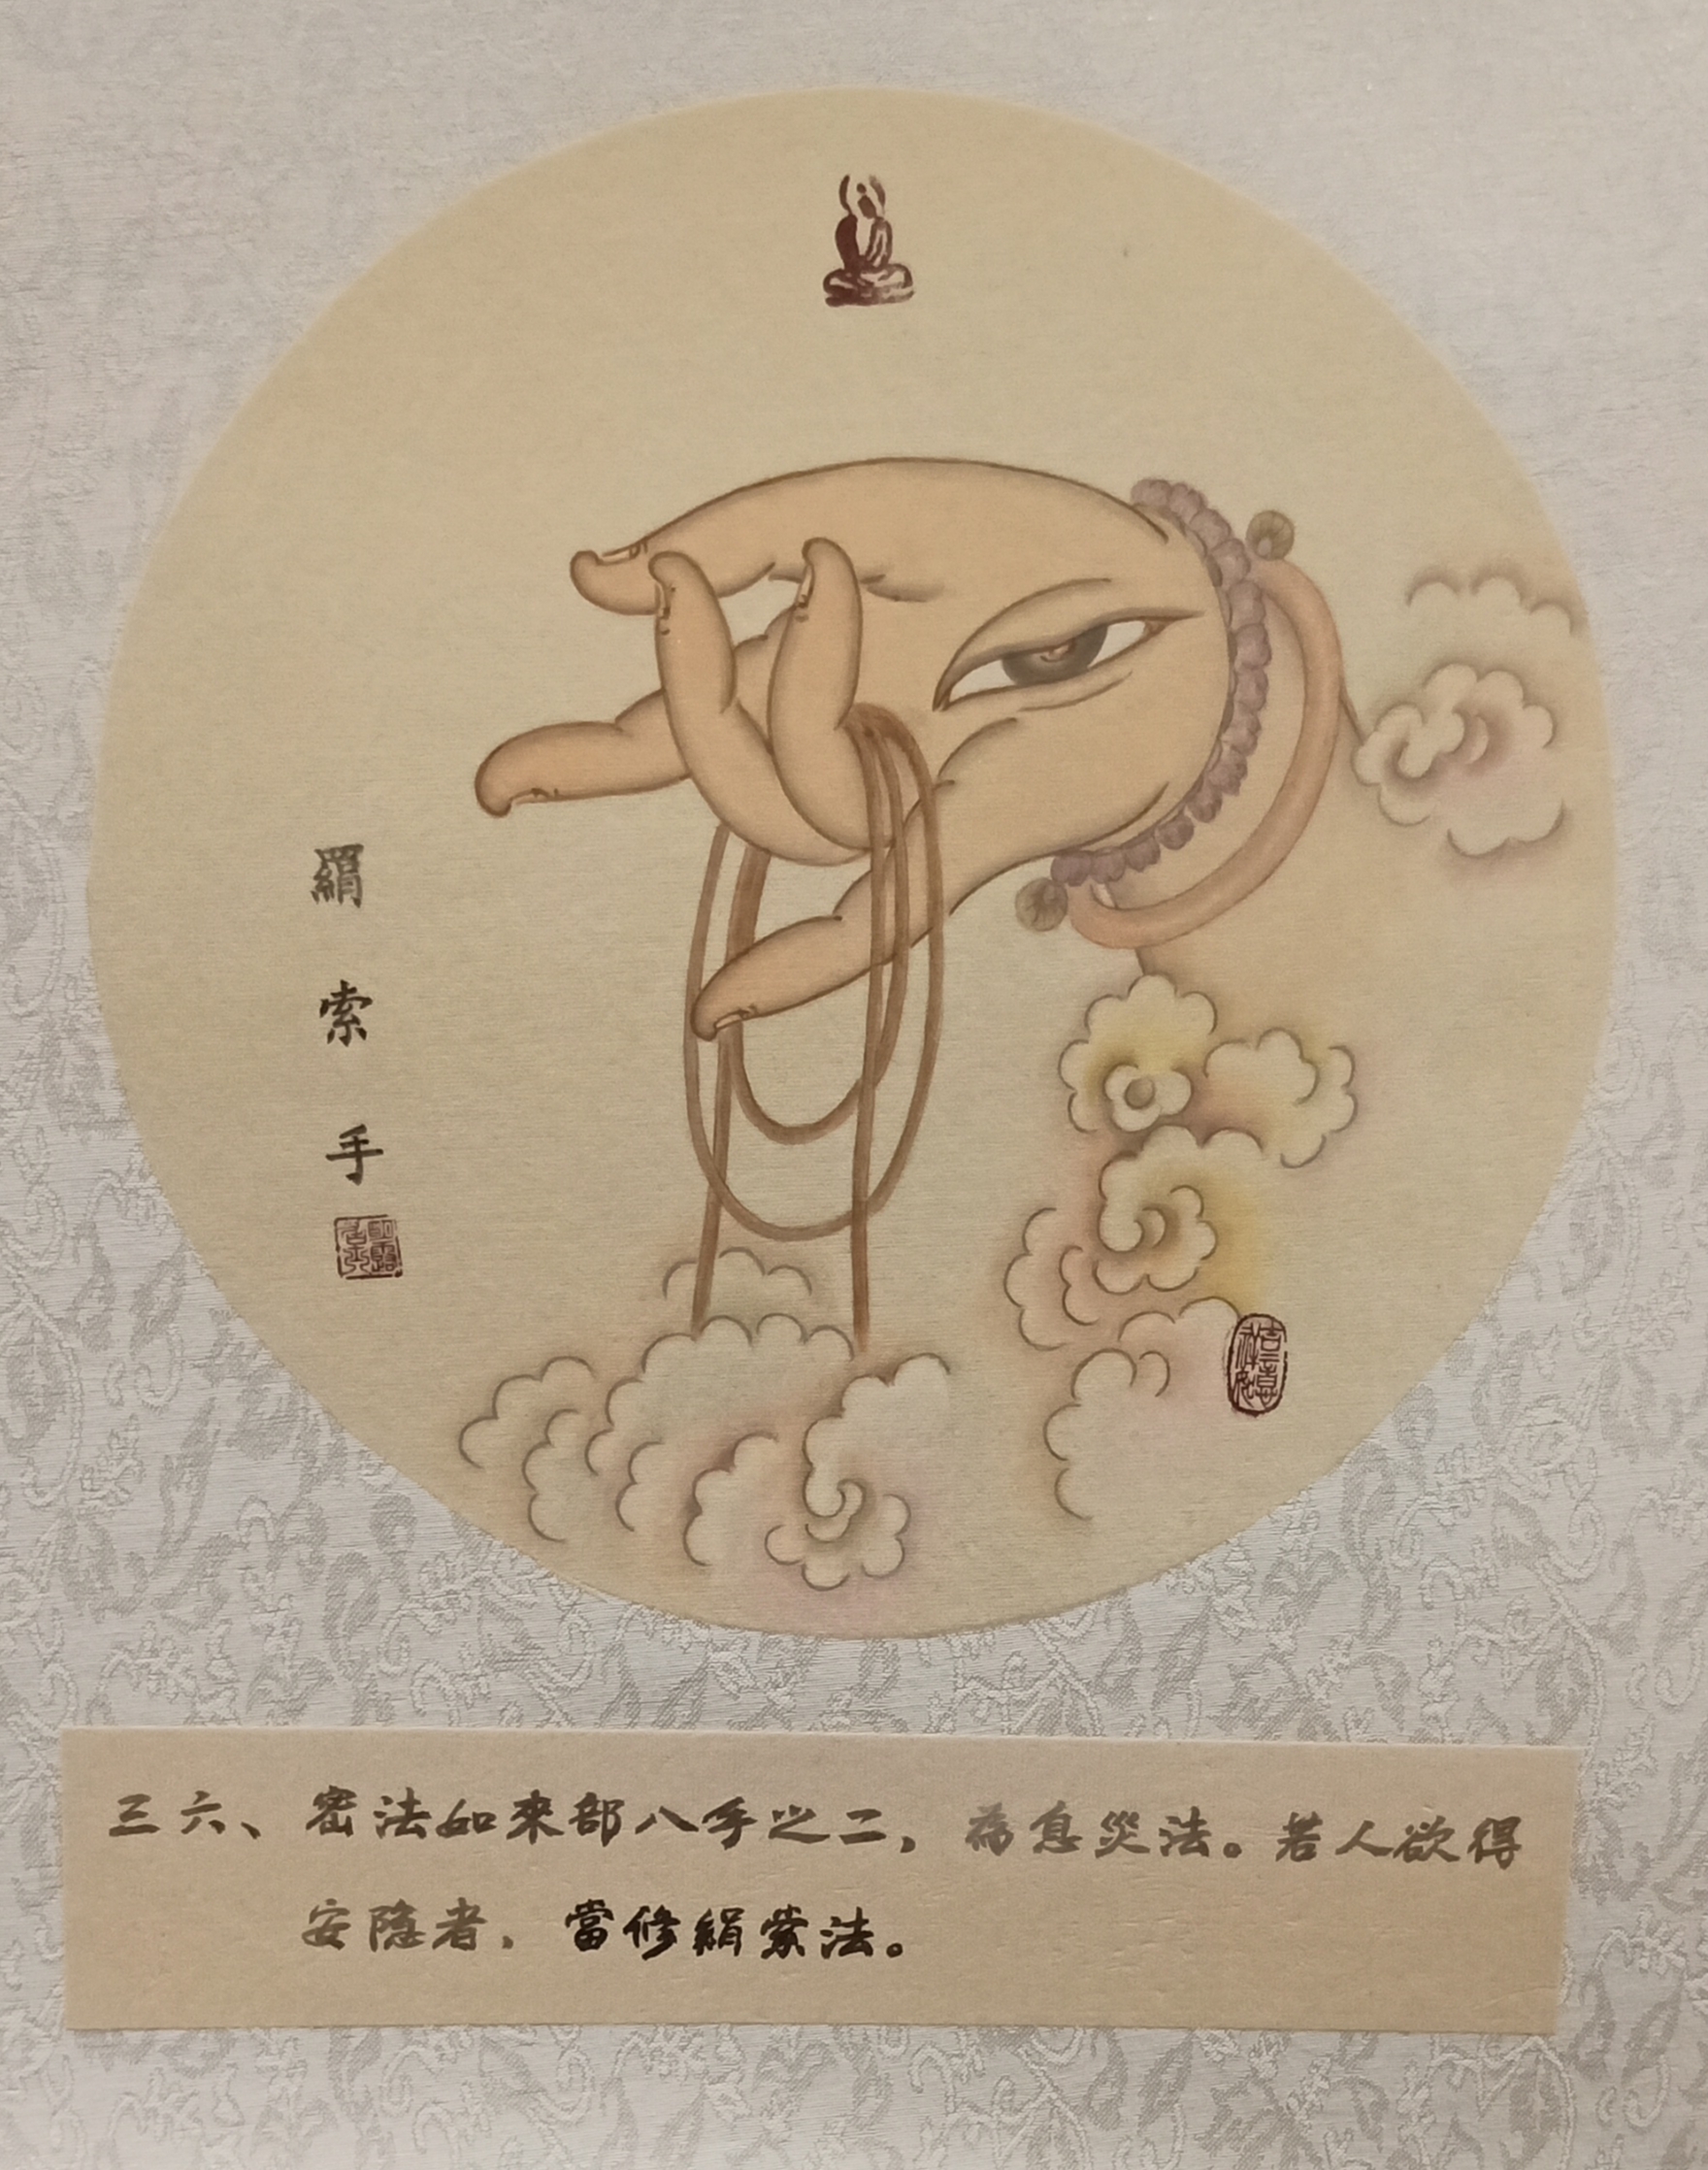 羂索手
吉祥如意
三六、密法如來部八手之二，為息災法。若人欲得
安隐者，當修絹索法。